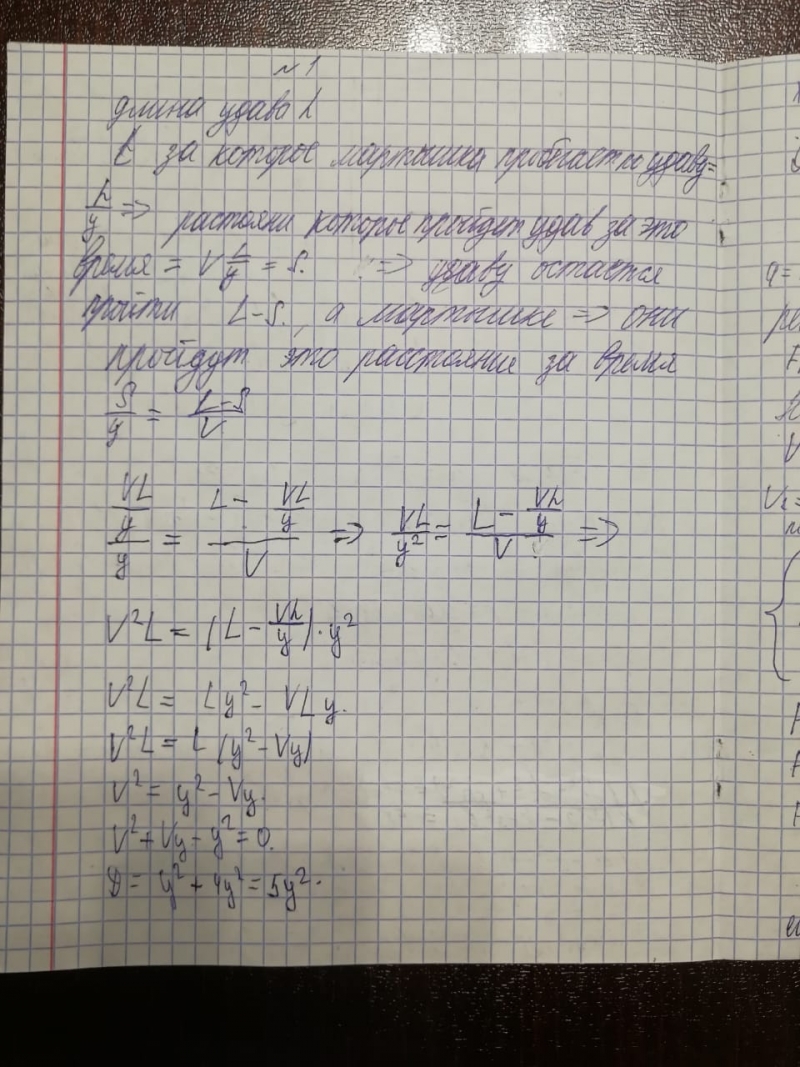 №1
длина удаво L
t за которое мартышка пробегает по удаву=
L/y => растояни которое пройдет удав за это
время = V L/y = S. => удаву остается
пройти L-S., а мартышке => они
пройдут это расстояние за время
S/y = (L-S)/V
(VL/y)/y = (L - VL/y)/V => VL/y² = (L - VL/y)/V =>
V²L = (L - VL/y)·y²
V²L = Ly² - VLy.
V²L = L(y²-Vy)
V² = y² - Vy.
V² + Vy - y² = 0.
D = y² + 4y² = 5y².